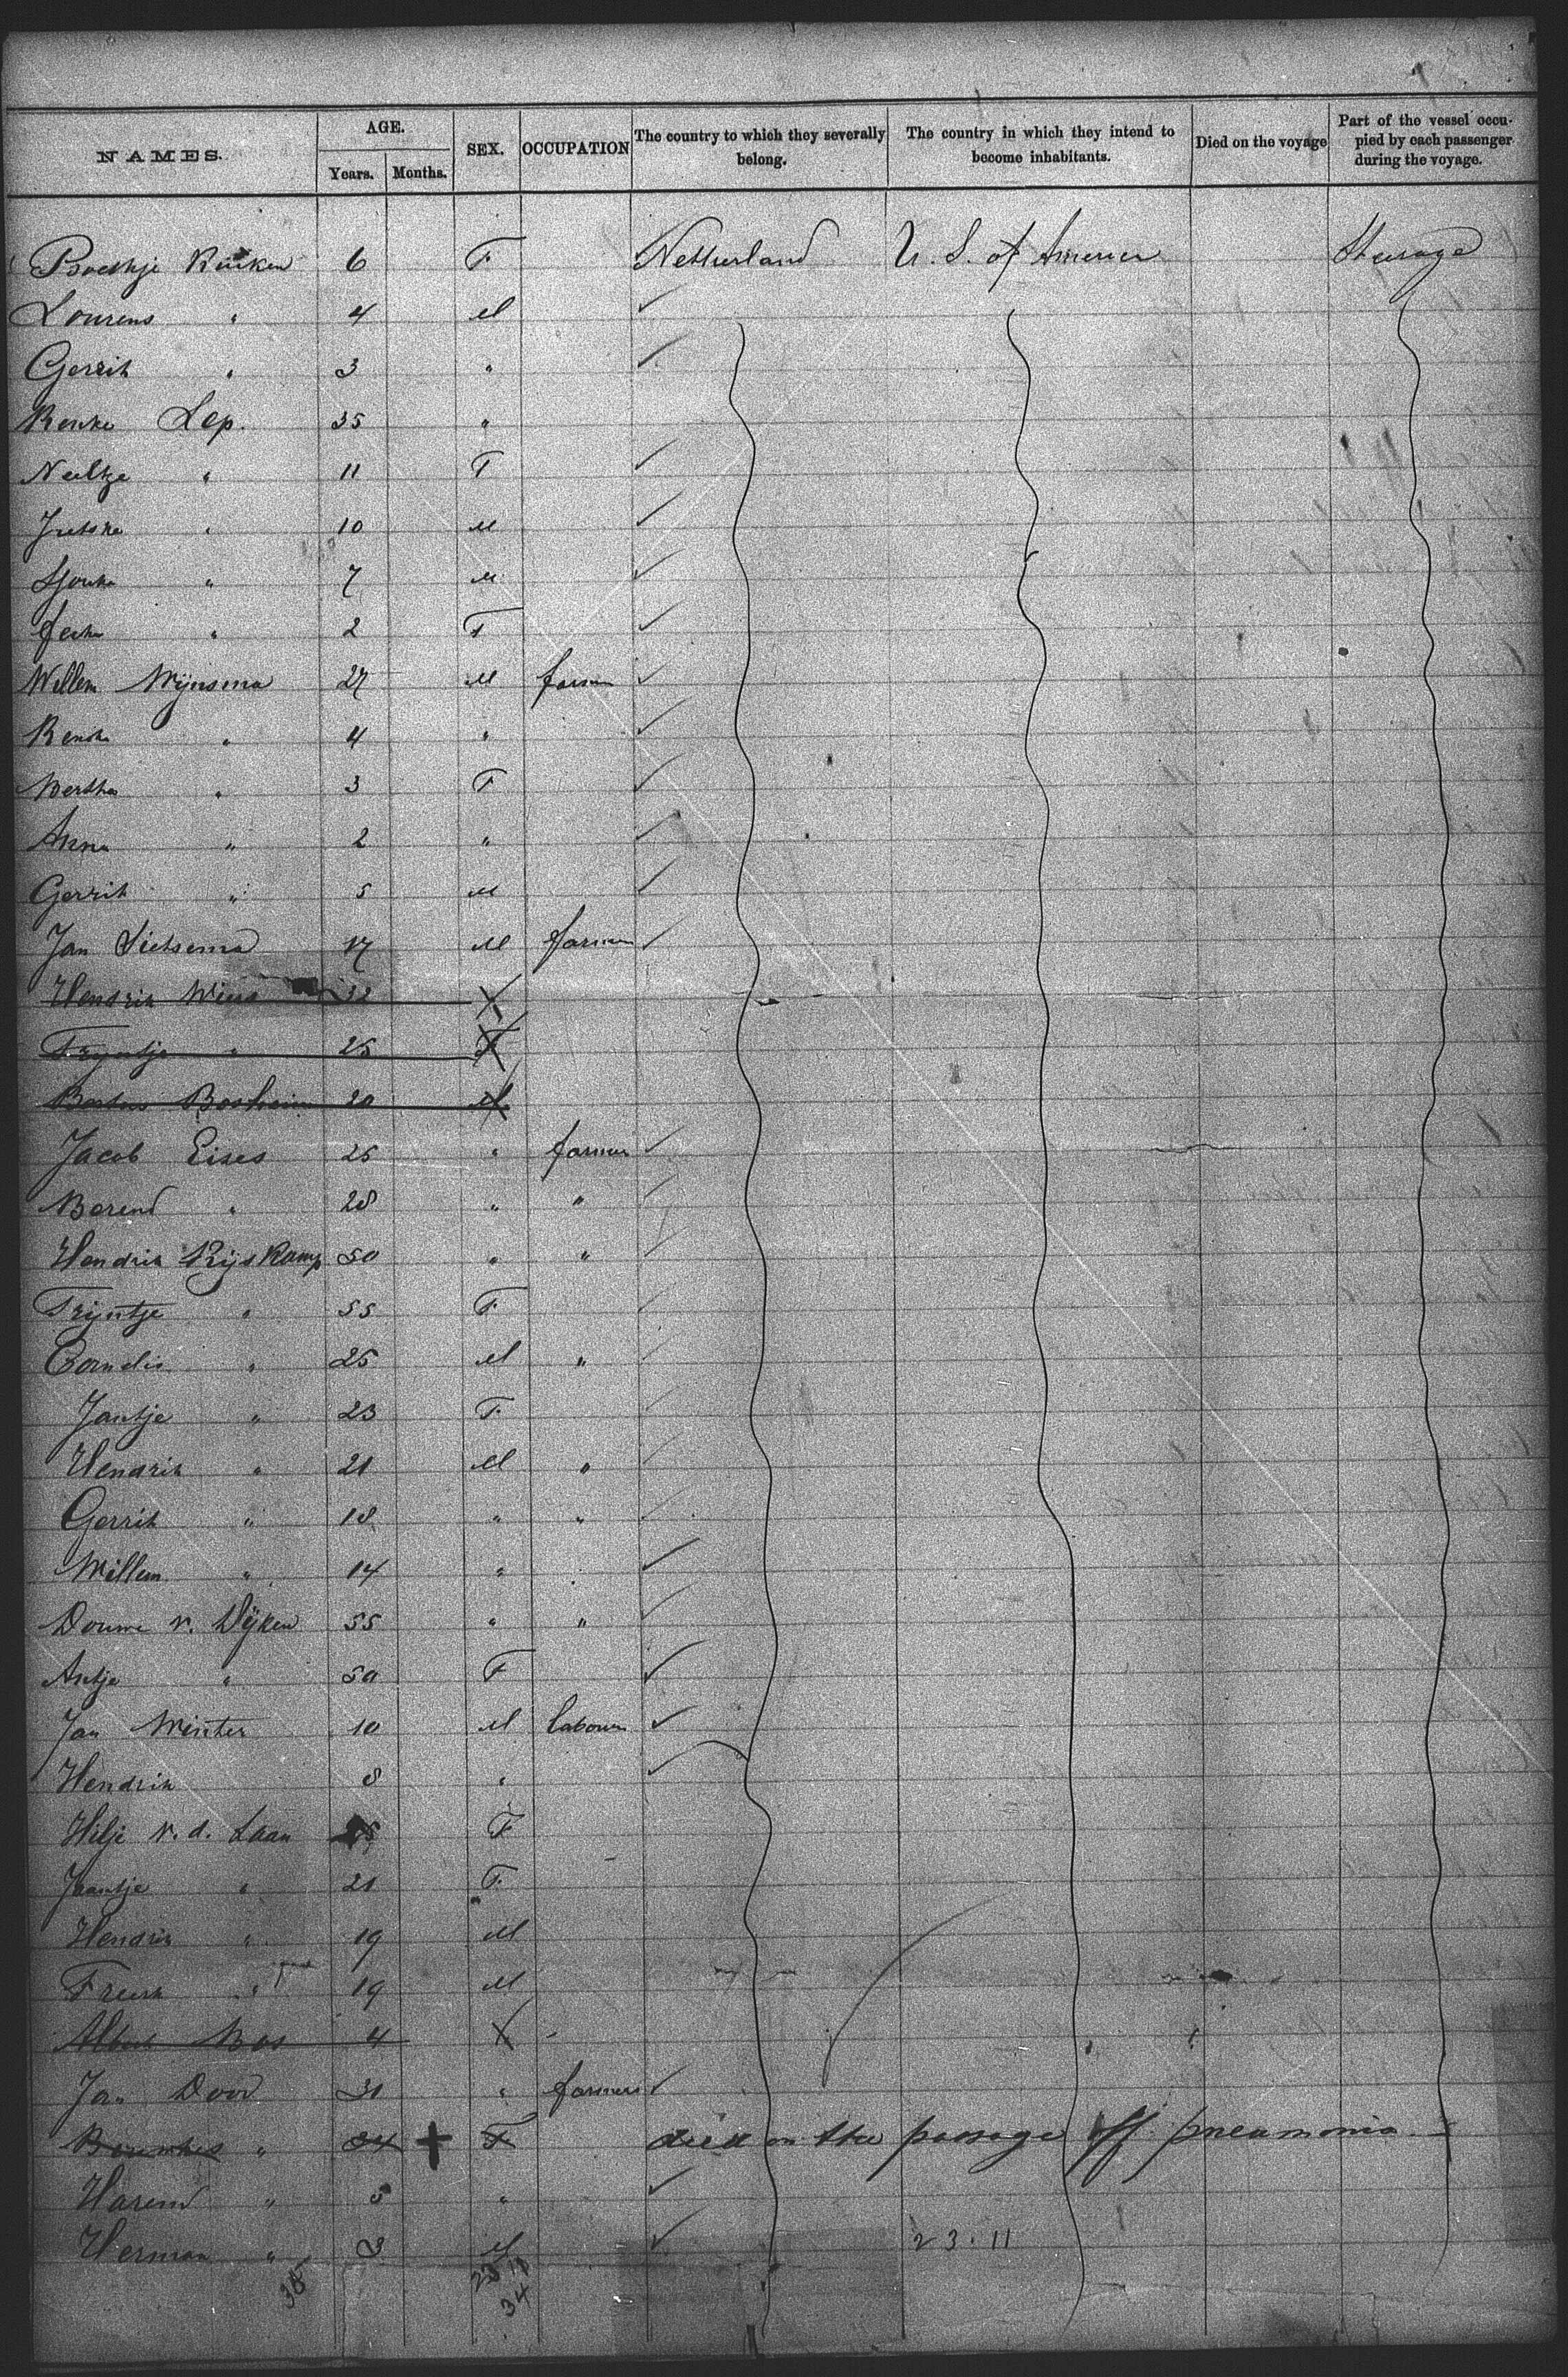 NAMES. AGE. Years. Months. SEX. OCCUPATION The country to which they severally belong. The country in which they intend to become inhabitants. Died on the voyage Part of the vessel occupied by each passenger during the voyage.
6 F Netherland U. S. of America Steerage
Lourens " 4 M
Gerrit " 3 "
Lep. 35 "
Neeltje " 11 F
" 10 M
" 7 M
" 2 F
Willem Wijnsma 27 M farmer
" 4 "
" 3 F
Anna " 2 "
Gerrit " 5 M
Jan Sietsema 17 M farmer
Hendrik 32
Trijntje " 25 F
20 M
Jacob Eises 25 " farmer
Berend " 28 " "
Hendrik Rijskamp 50 " "
Trijntje " 55 F
Cornelis " 25 M "
Jantje " 23 F
Hendrik " 21 M "
Gerrit " 18 " "
Willem " 14 "
Douwe v. Dijken 55 " "
Antje " 50 F
Jan Winter 10 M labourer
Hendrik 8 "
Hilje v. d. Laan F
Jantje " 21 F
Hendrik " 19 M
" 19 M
Albert Bos 4
Jan Door 31 " farmer
" 34 + F died on the passage off pneumonia
Harend " 5 "
Herman " 3 M 23.11
38 23 11
34